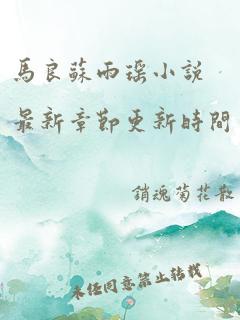 馬良蘇雨瑤小說
最新章節更新時間
銷魂菊花散
未經同意禁止轉載